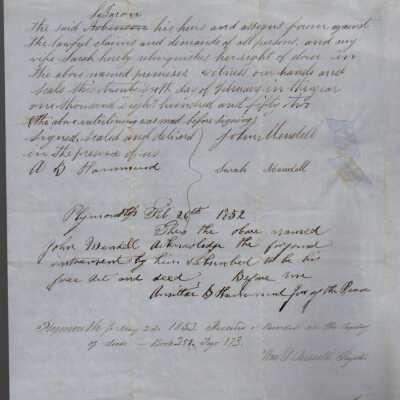 the said Robinson his heirs and assigns forever against
the lawful claims and demands of all persons, and my
wife Sarah hereby relinquishes her right of dower in
the above named premises witness our hands and
seals this twenty sixth day of February in the year
one thousand eight hundred and fifty two
(the above interlining was made before signing)
Signed, Sealed and delivered
in the presence of us
John Mendell
A B Hammond
Sarah Mendell
Plymouth ss Feb 26th 1852
Then the above named
John Mendell acknowledge the foregoing
instrument by him subscribed to be his
free act and deed Before me
B Hammond Jus of the Peace
Plymouth ss
Received & Recorded in the Registry
of deeds — Book 252 Page 173.
Wm S. Russell